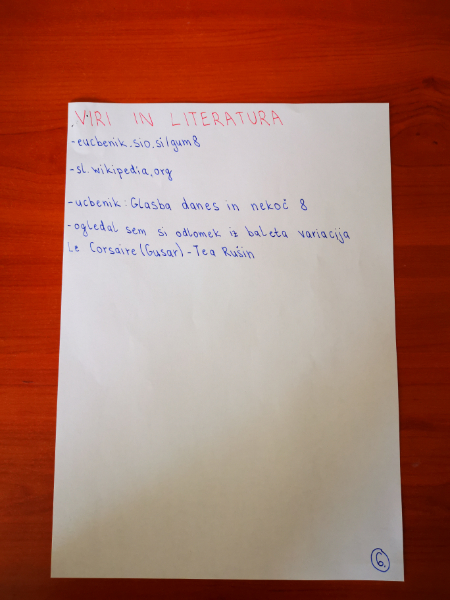 VIRI IN LITERATURA
-eucbenik.sio.si/gum8
-sl.wikipedia.org
-ucbenik: Glasba danes in nekoč 8
-ogledal sem si odlomek iz baleta variacija
Le Corsaire (Gusar) - Tea Rušin
6.